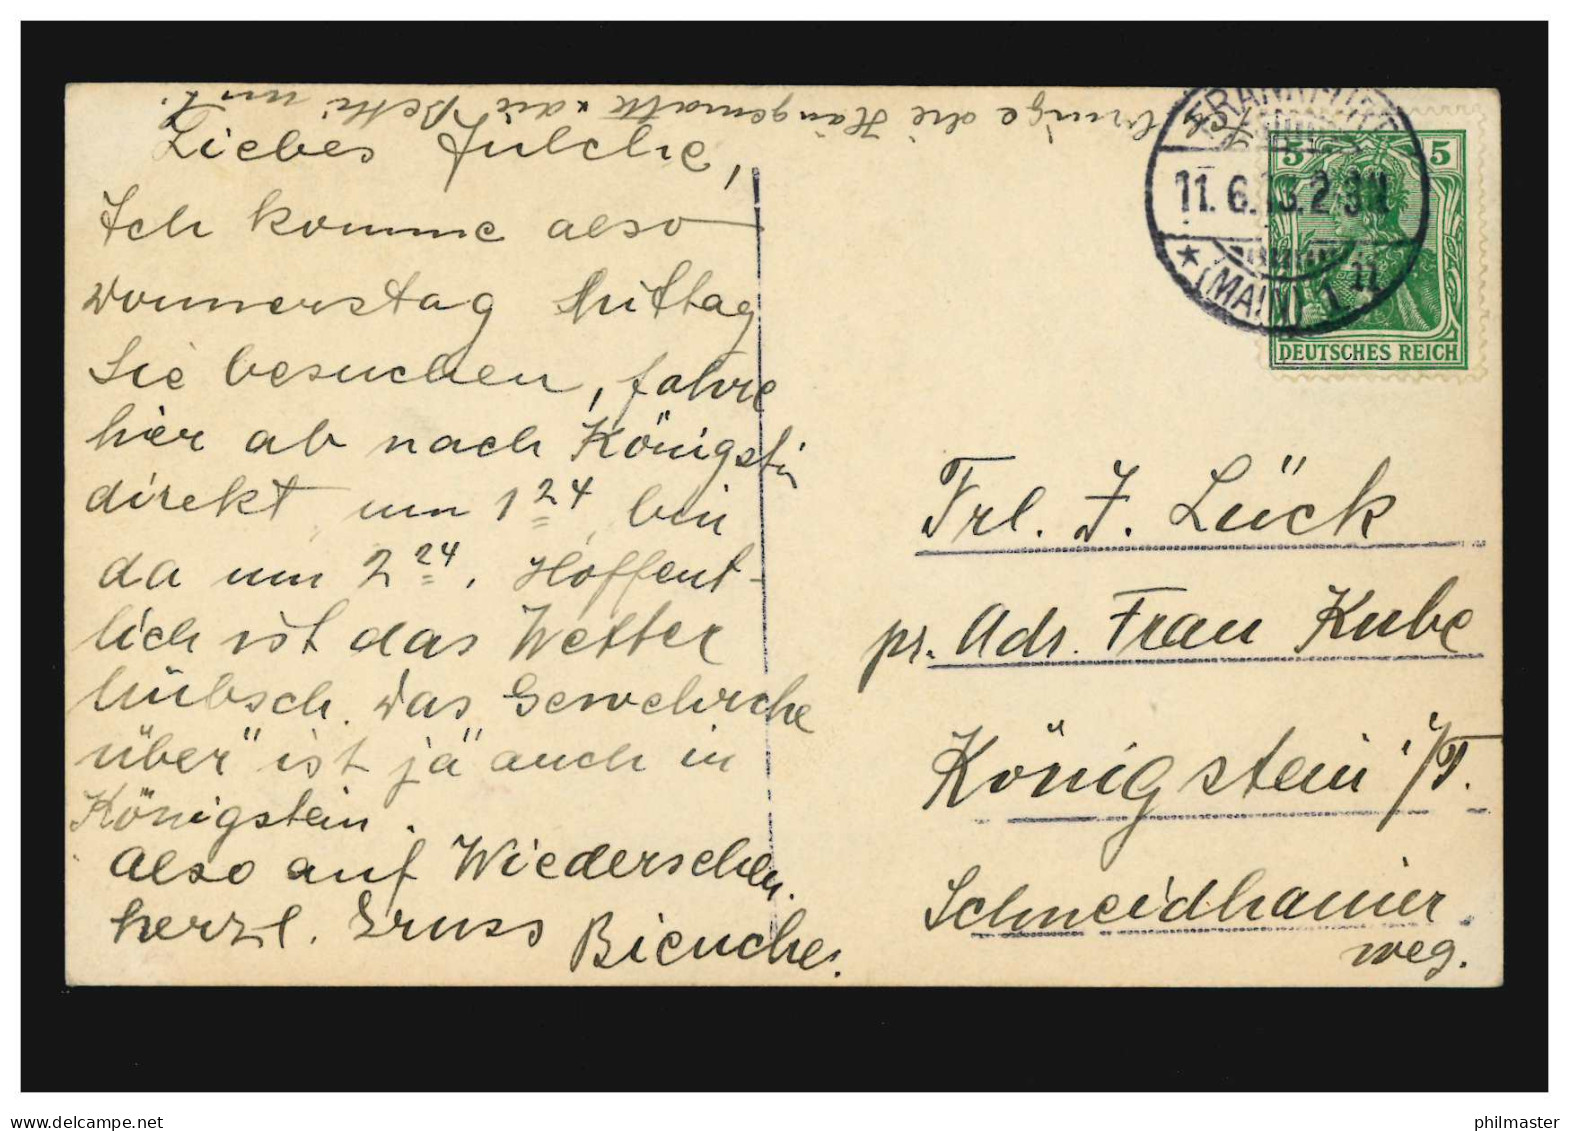 Ich bringe die Hängematte & die Betti mit.
Liebes Julche,
Ich komme also
Donnerstag Mittag
Sie besuchen, fahre
hier ab nach Königstein
direkt um 1 24, bin
da um 2 24. Hoffent-
lich ist das Wetter
hübsch. Das Gewehrche
über" ist ja" auch in
Königstein.
also auf Wiedersehen.
herzl. Gruss Bienche.
FRANKFURT
11. 6. 13. 2-3 N
* (MAIN) 1 n
5 5
DEUTSCHES REICH
Frl. J. Lück
pr. Adr. Frau Kube
Königstein i/T.
Schneidhainer
weg.
www.delcampe.net
philmaster